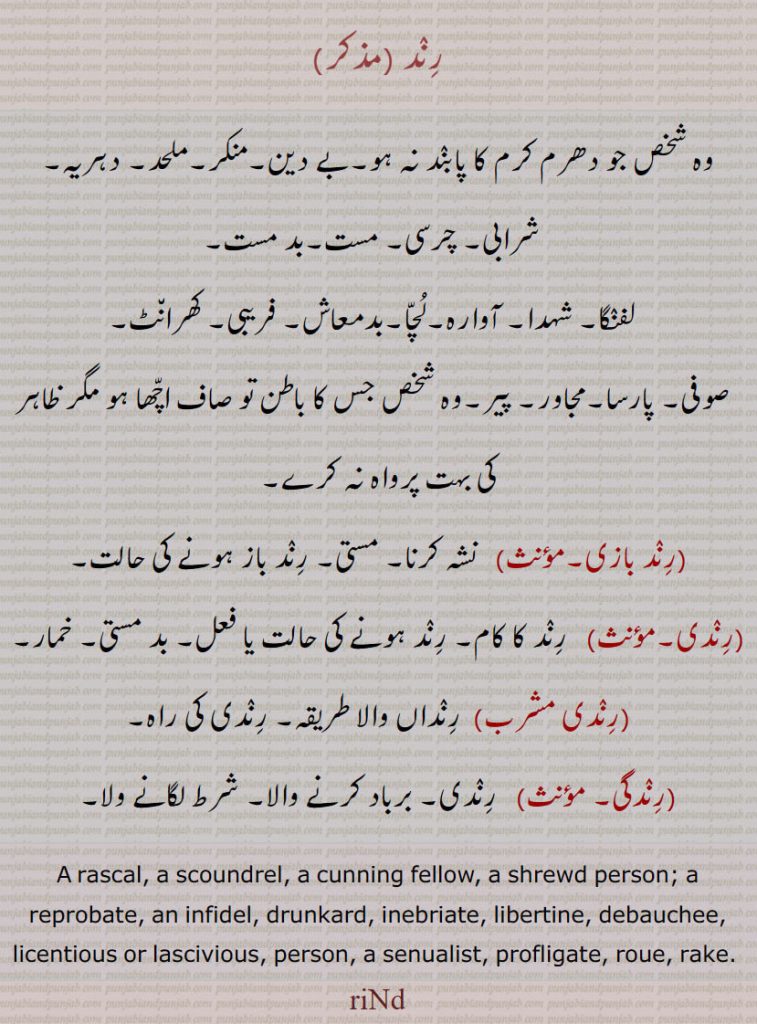 رِنْد (مذکر)
وہ شخص جو دھرم کرم کا پابنْد نہ ہو۔بے دین۔منکر۔ملحد۔ دہریہ۔
شرابی۔ چرسی۔ مست۔بد مست۔
لفنْگا۔ شہدا۔ آوارہ۔لُچّا۔بدمعاش۔ فریبی۔ کھرانْٹ۔
صوفی۔ پارسا۔مجاور۔ پیر۔وہ شخص جس کا باطن تو صاف اچّھا ہو مگر ظاہر
کی بہت پرواہ نہ کرے۔
(رِنْد بازی۔مؤنث) نشہ کرنا۔ مستی۔ رِنْد باز ہونے کی حالت۔
(رِنْدی۔مؤنث) رِنْد کا کام۔ رِنْد ہونے کی حالت یا فعل۔ بد مستی۔ خمار۔
(رِنْدی مشرب) رِنْداں والا طریقہ۔ رِنْدی کی راہ۔
(رِنْدگی۔ مؤنث) رِنْدی۔ برباد کرنے والا۔ شرط لگانے ولا۔
A rascal, a scoundrel, a cunning fellow, a shrewd person; a
reprobate, an infidel, drunkard, inebriate, libertine, debauchee,
licentious or lascivious, person, a senualist, profligate, roue, rake.
riNd